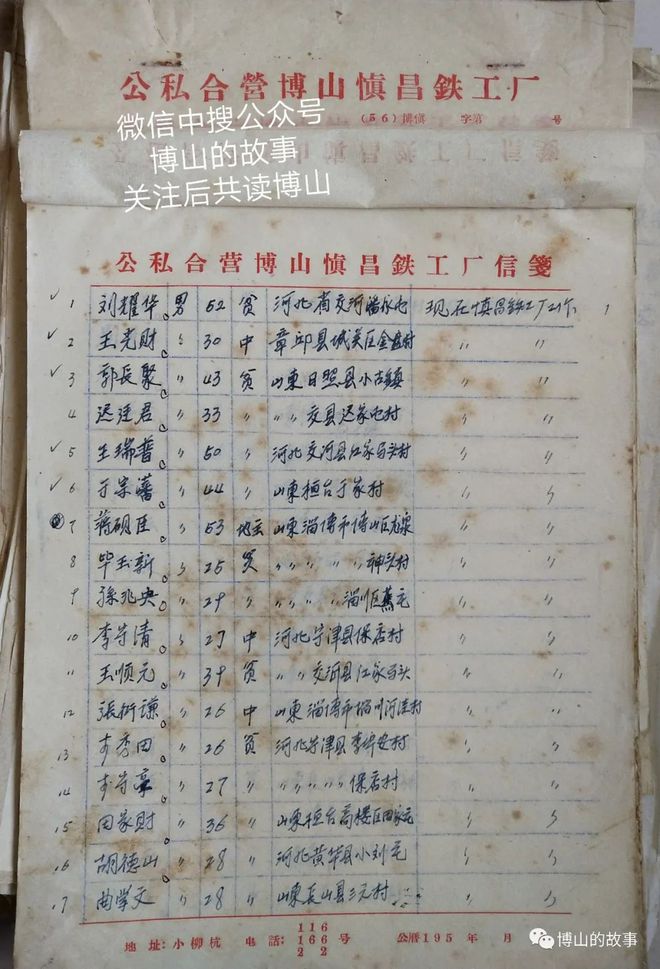 公私合营博山慎昌鉄工厂
(56)博慎 字第 号
微信中搜公众号
博山的故事
关注后共读博山
公私合营博山慎昌鉄工厂信笺
1 刘耀华 男 52 贫 河北省交河 现在慎昌鉄工厂工作
2 王光财 〃 30 中 章邱县城关区金盘村 〃 〃
3 郭長聚 〃 43 贫 山東日照县小古镇 〃 〃
4 迟 君 〃 33 〃 〃 〃 交县迟家屯村 〃 〃
5 王瑞普 〃 50 〃 河北交河县江家马头村 〃 〃
6 于 〃 44 〃 山東桓台于家村 〃 〃
7 蒋砚臣 〃 53 地主 山東淄博市博山区 〃 〃
8 毕玉新 〃 25 贫 〃 〃 〃 〃 神头村 〃 〃
9 孫兆央 〃 29 〃 〃 〃 〃 淄川区 〃 〃
10 李守清 〃 27 中 河北宁津县保店村 〃 〃
11 王顺元 〃 39 贫 〃 〃 交河县江家马头 〃 〃
12 張衍谦 〃 26 中 山東淄博市淄川河洼村 〃 〃
13 李秀田 〃 26 贫 河北宁津县李 村 〃 〃
14 李守亭 〃 27 〃 〃 〃 〃 〃 保店村 〃 〃
15 田家财 〃 36 〃 山東桓台高楼区田家屯 〃 〃
16 胡德山 〃 28 〃 河北黄华县小刘屯 〃 〃
17 曲学文 〃 28 〃 山東長山县三元村 〃 〃
地址:小柳杭 电話:116 166 22 号 公曆195 年 月
博山的故事